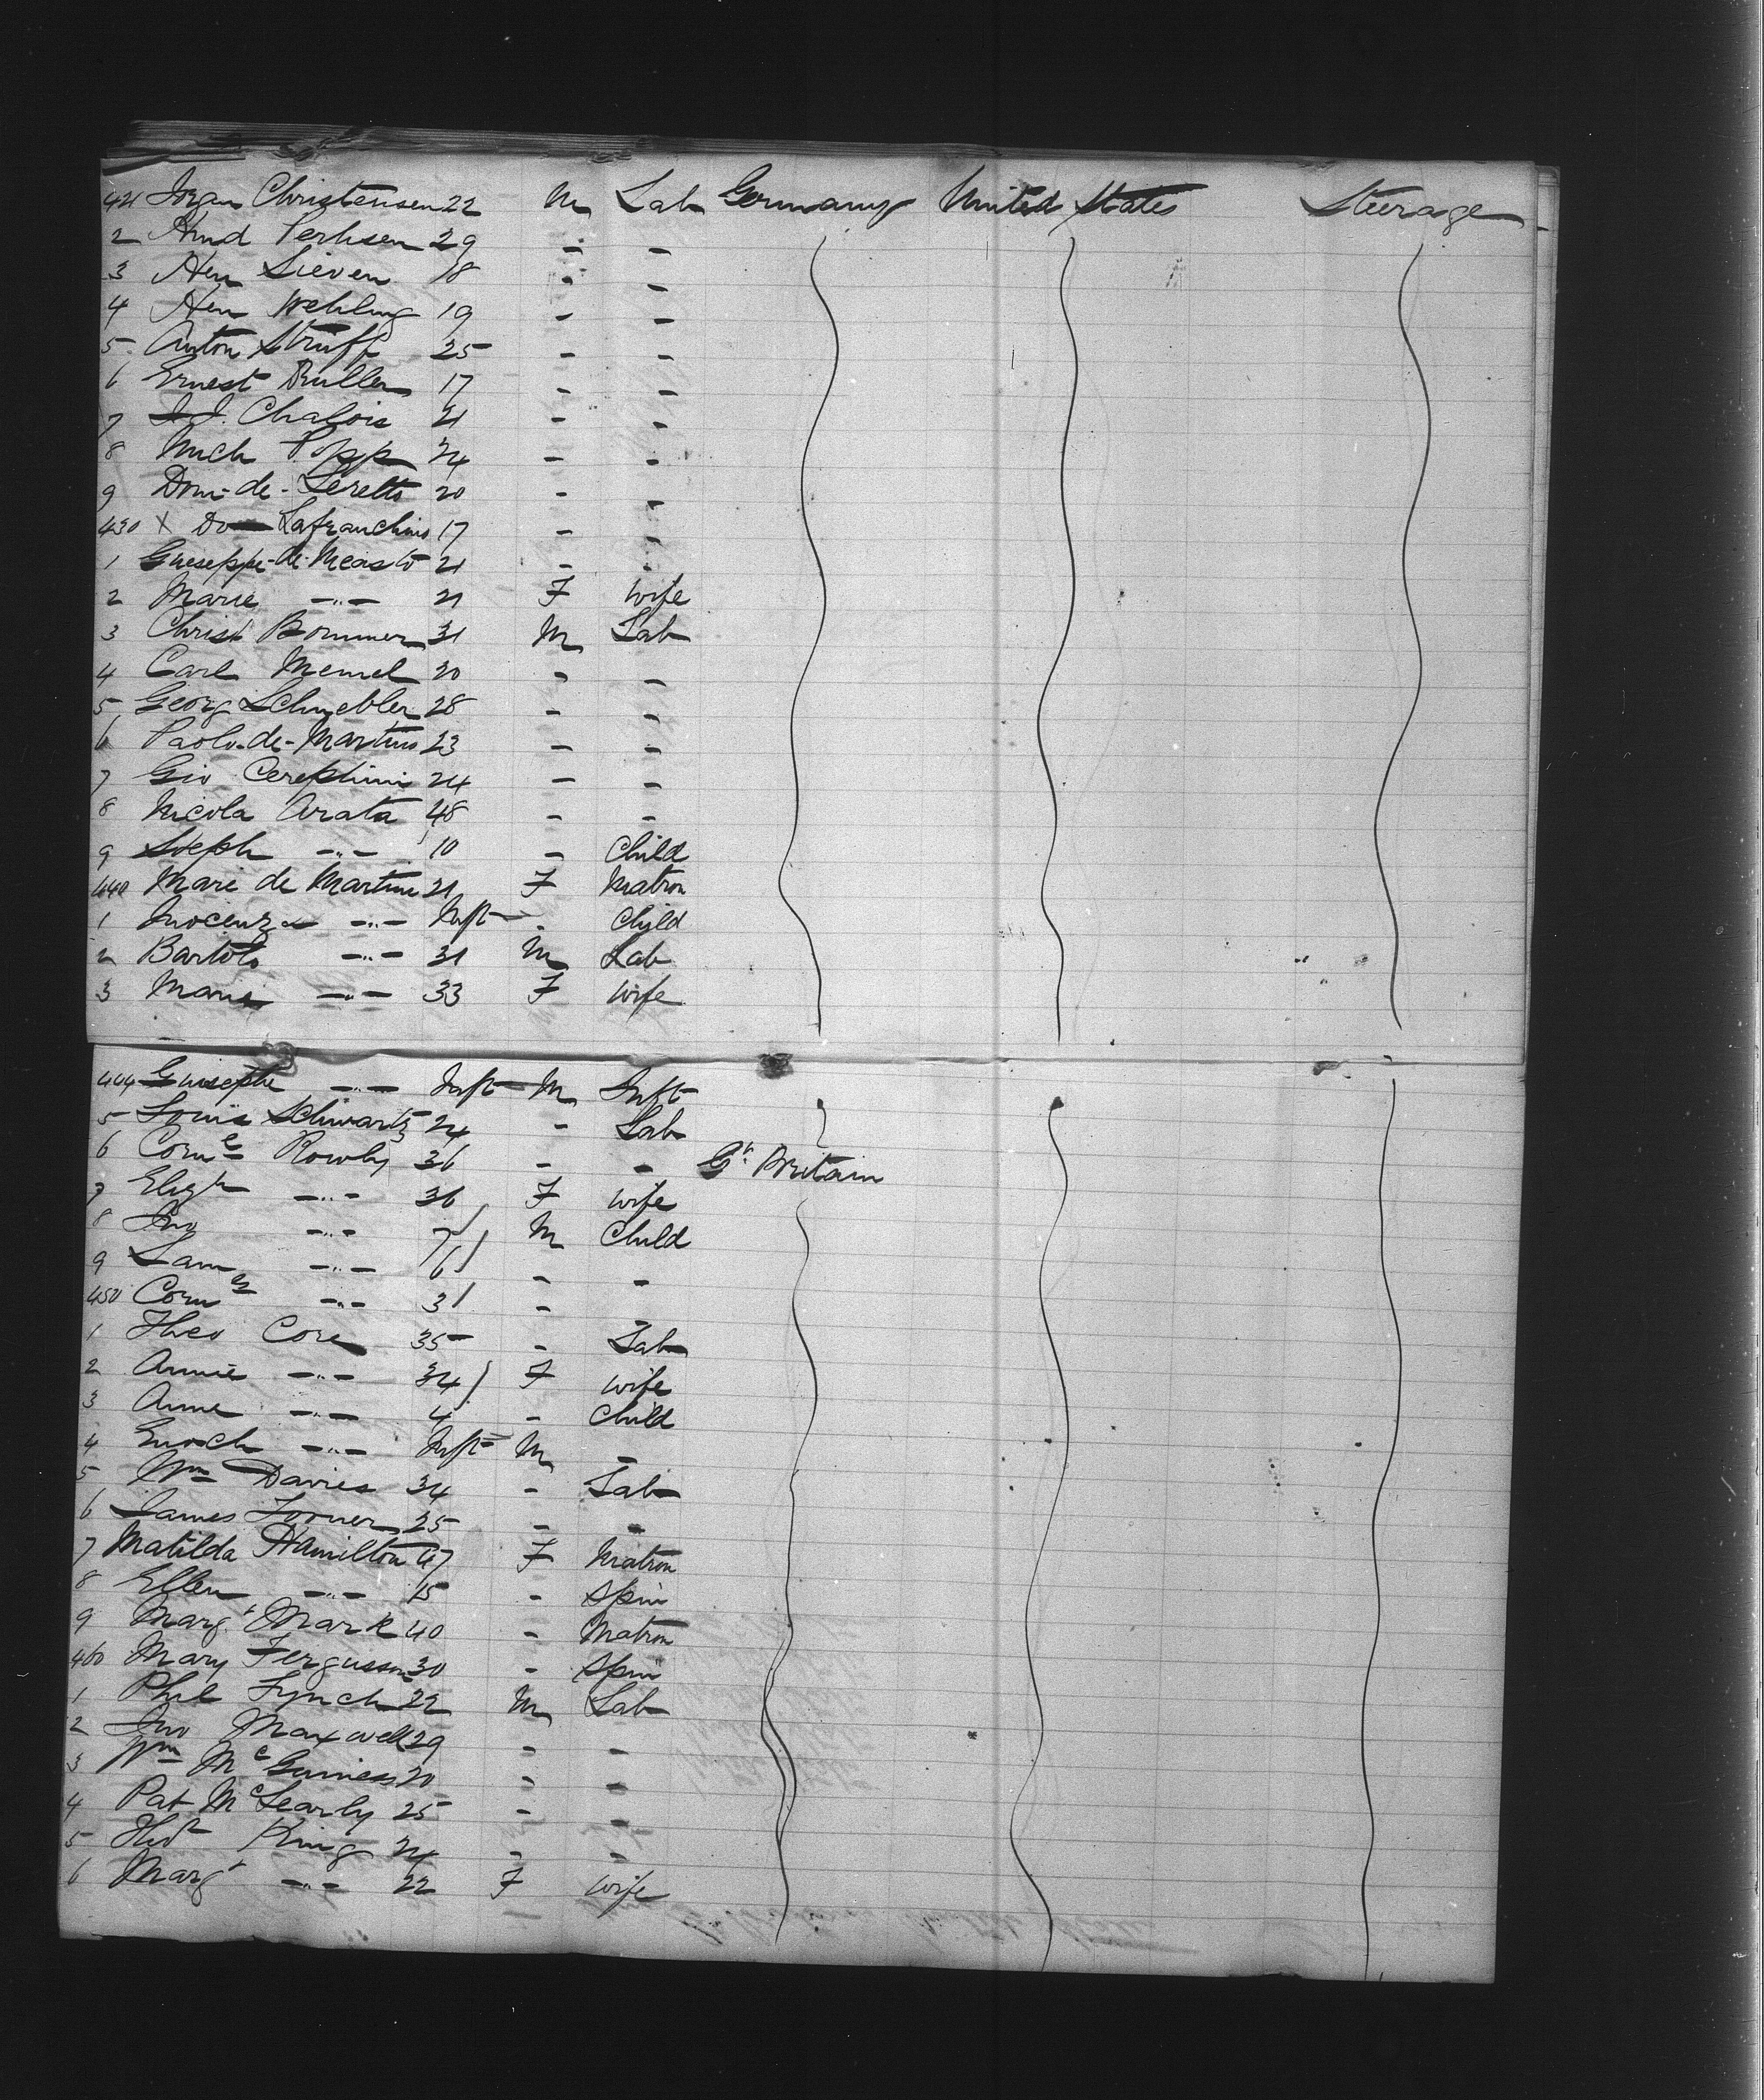 421 Jörgen Christensen 22 M Lab Germany United States Steerage
2 29 - -
3 Hen Sieven 18 - -
4 Hen Wehling 19 - -
5 Anton Struff 25 - -
6 Ernest Buller 17 - -
7 J. J. Chalois 21 - -
8 Mich Popp 24 - -
9 Dom-de-Leretto 20 - -
430 X Do Lafranchino 17 - -
1 Guiseppe-de-Measto 21 - -
2 Marie -"- 21 F Wife
3 Christ Bommer 31 M Lab
4 Carl Memel 20 - -
5 Georg Schnebler 28 - -
6 Paolo-de-Martino 23 - -
7 Gio 24 - -
8 Nicola Arata 48 - -
9 Steph -"- 10 - Child
440 Marie de Martino 21 F Matron
1 Inocenza -"- Inft - Child
2 Bartolo -"- 31 M Lab
3 Marie -"- 33 F Wife
444 Guisephe -"- Inft M Inft
5 Louis Schwartz 24 - Lab
6 Corns Rowby 36 - - Gt Britain
7 Elizh -"- 36 F Wife
8 Jno -"- 7 M Child
9 Sam -"- 6 - -
450 Corns -"- 3 -
1 Theo Core 35 - Lab
2 Annie -"- 34 F Wife
3 Anne -"- 4 - Child
4 Enoch -"- Inft M -
5 Wm Davies 34 - Lab
6 James Toner 25 - -
7 Matilda Hamilton 47 F Matron
8 Ellen -"- 15 - Spin
9 Margt Mark 40 - Matron
460 Mary Fergusson 30 - Spin
1 Phil Lynch 22 M Lab
2 Jno Maxwell 29 - -
3 Wm McGuiness 20 - -
4 Pat McLearly 25 - -
5 King 24 - -
6 Margt -"- 22 F Wife